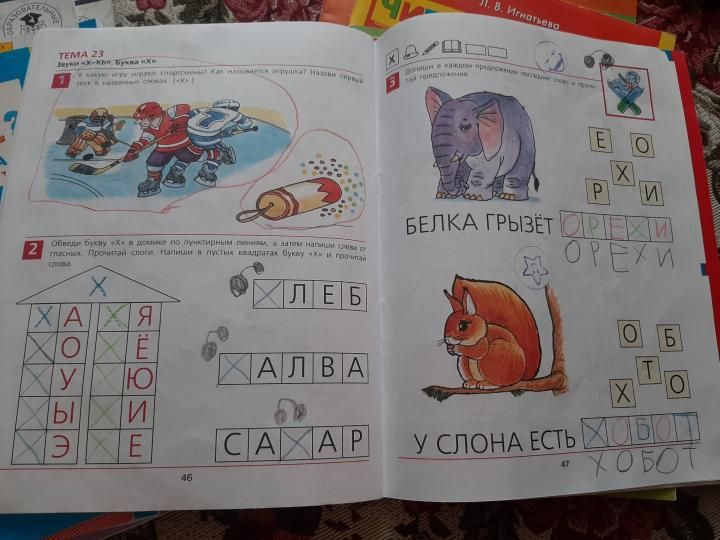 ОБРАЗОВАТЕЛЬНЫЕ
Л. В. Игнатьева
ТЕМА 23
Звуки «Х–Хь». Буква «Х»
1 В какую игру играют спортсмены? Как называется игрушка? Назови первый
звук в названных словах. («Х».)
2 Обведи букву «Х» в домике по пунктирным линиям, а затем напиши слева от
гласных. Прочитай слоги. Напиши в пустых квадратах букву «Х» и прочитай
слова.
Х
Х А Х Я
Х О Х Ё
Х У Х Ю
Х Ы Х И
Х Э Х Е
ХЛЕБ
ХАЛВА
САХАР
46
Х
3 Допиши в каждом предложении последнее слово и прочи-
тай предложения.
Е О
Х
Р И
БЕЛКА ГРЫЗЁТ ОРЕХИ
ОРЕХИ
О Б
Т
Х О
У СЛОНА ЕСТЬ ХОБОТ
ХОБОТ
47